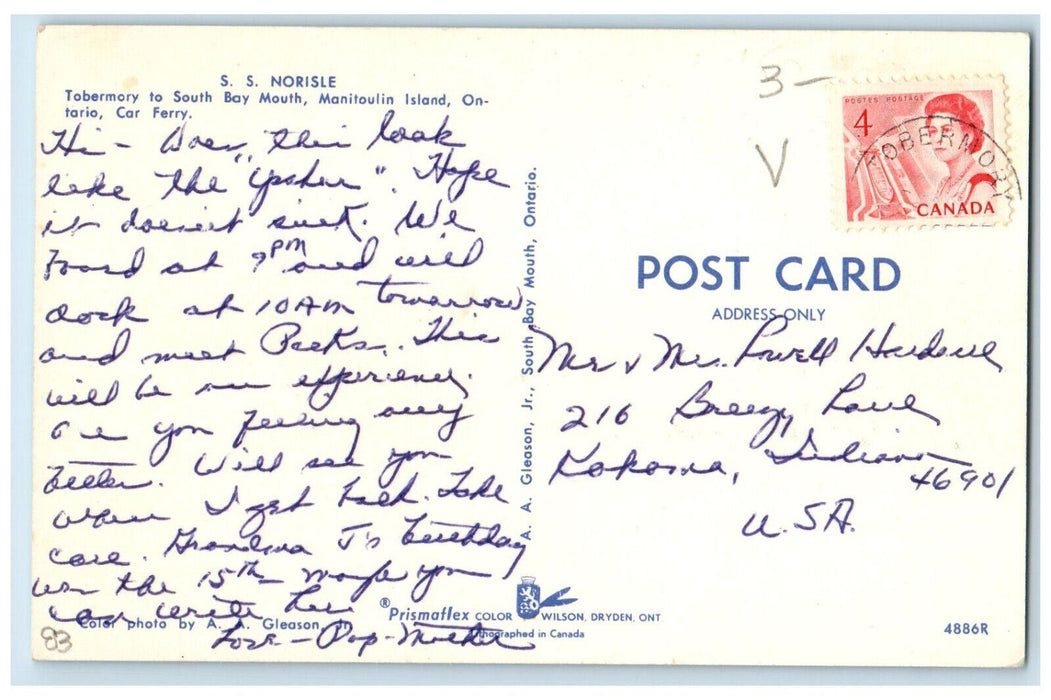 S. S. NORISLE
Tobermory to South Bay Mouth, Manitoulin Island, On-
tario, Car Ferry.
Hi - Does this look
like the " ". Hope
it doesn't sink. We
Board at 7PM and will
dock at 10AM tomorrow
and meet Parks. This
will be an experience.
Are you feeling any
better. Will see you
when I get back. Take
care. Grandma J's birthday
on the 15th maybe you
can write her
Love - Pop - Mother
Color photo by A. A. Gleason, Jr.
83
A. A. Gleason, Jr., South Bay Mouth, Ontario.
® Prismaflex COLOR WILSON, DRYDEN, ONT
Lithographed in Canada
3 -
V
POSTES POSTAGE
4
CANADA
TOBERMORY
POST CARD
ADDRESS ONLY
Mr & Mrs. Powell
216 Breezy Lane
Kokomo, Indiana
46901
U.SA.
4886R